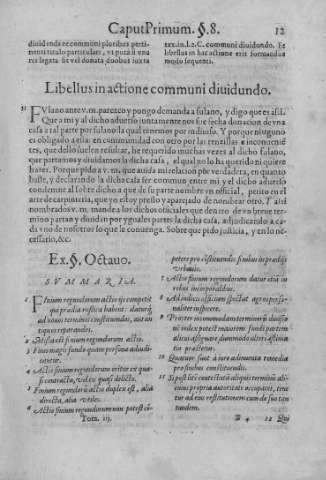 Caput Primum. §. 8. 12
diuidenda re communi pluribus perti-
nenti titulo particulari, vt puta si vna
res legata sit vel donata duobus iuxta
tex. in l. 2. C. communi diuidundo. Et
libellus in hac actione erit formandus
modo sequenti.
Libellus in actione communi diuidundo.
Fulano ante v. m. parezco y pongo demanda a fulano, y digo que es assi.
Que a mi y al dicho aduerso juntamente nos fue fecha donacion de vna
casa a tal parte por fulano la qual tenemos por indiuisa. Y porque ninguno
es obligado a estar en communidad con otro por las renzillas e inconuenie
tes, que dello suelen resultar, he requerido muchas vezes al dicho fulano,
que partamos y diuidamos la dicha casa, el qual no lo ha querido ni quiere
hazer. Porque pido a v. m. que auida mi relacion por verdadera, en quanto
baste, y declarando la dicha casa ser commun entre mi y el dicho aduerso
condemne al sobre dicho a que de su parte nombre vn official, perito en el
arte de carpinteria, que yo estoy presto y aparejado de nombrar otro. Y assi
nombrados v. m. mande a los dichos oficiales que dentro de vn breue ter-
mino partan y diuidan por yguales partes la dicha casa, adjudicando a ca-
da vno de nosotros lo que le conuenga. Sobre que pido justicia, y en lo ne-
cessario, &c.
Ex. §. Octauo.
SVMMARIA.
1 Finium regundorum actio ijs competit
qui prædia rustica habent: datur q̃
ad nouos terminos constituendos, aut an
tiquos reparandos.
2 Mista est finium regundorum actio.
3 Fines magis fundo quàm personæ adiudi-
centur.
4 Actio finium regundorum oritur ex qua-
si contractu, vel ex quasi delicto.
5 Finium regundorum actio duplex est, alia
directa, alia vtilis.
6 Actio finium regundorum non potest cõ-
Tom. iij.
petere pro cõstituendis finibus in prædijs
vrbanis.
7 Actio finium regundorum datur etiã in
rebus incorporalibus.
8 Ad iudicis officium spectat agros perso-
naliter inspicere.
9
alicui assignare dummodo alteri æstima
tio præstetur.
10 Quatuor sunt à iure adinuenta remedia
pro finibus constituendis.
11 Si post litẽ contestatã aliquis terminũ ali-
cuius propria autoritate occupauit, tene
tur ad eius restitutionem cum de suo tan
tundem.
B 4 12 Qui